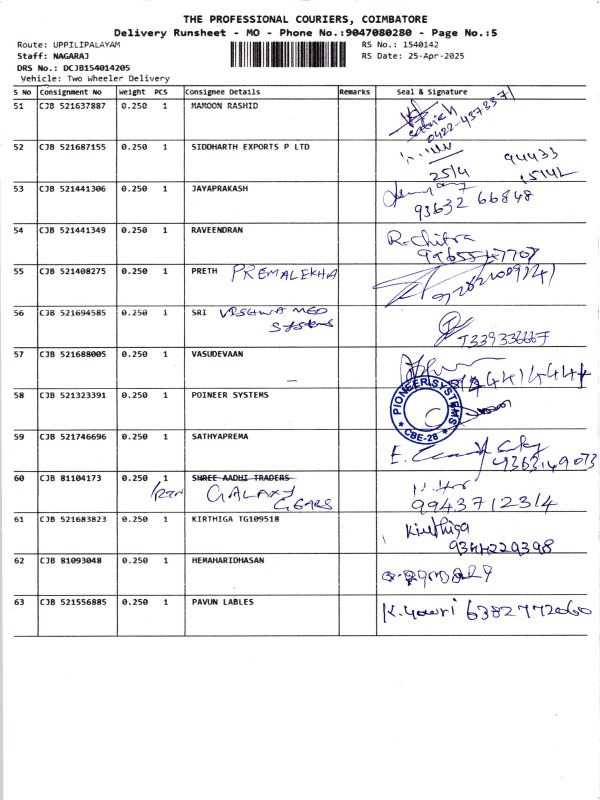 THE PROFESSIONAL COURIERS, COIMBATORE
Delivery Runsheet - MO - Phone No.:9047080280 - Page No.:5
Route: UPPILIPALAYAM
RS No.: 1540142
Staff: NAGARAJ
RS Date: 25-Apr-2025
DRS No.: DCJB154014205
Vehicle: Two Wheeler Delivery
S No Consignment No Weight PCS Consignee Details Remarks Seal & Signature
51 CJB 521637887 0.250 1 MAMOON RASHID
52 CJB 521687155 0.250 1 SIDDHARTH EXPORTS P LTD
25/4
53 CJB 521441306 0.250 1 JAYAPRAKASH
93632 66848
54 CJB 521441349 0.250 1 RAVEENDRAN R.Chitra
55 CJB 521408275 0.250 1 PRETH PREMALEKHA
56 CJB 521694585 0.250 1 SRI VISHWA MED
Systems
57 CJB 521688005 0.250 1 VASUDEVAAN
58 CJB 521323391 0.250 1 POINEER SYSTEMS PIONEER SYSTEMS
* CBE-28 *
59 CJB 521746696 0.250 1 SATHYAPREMA
60 CJB 81104173 0.250 1 SHREE AADHI TRADERS
/RTN GALAXY
GEARS
9943712314
61 CJB 521683823 0.250 1 KIRTHIGA TG109518 Kirthiga
62 CJB 81093048 0.250 1 HEMAHARIDHASAN
63 CJB 521556885 0.250 1 PAVUN LABLES K.gowri 6382772060